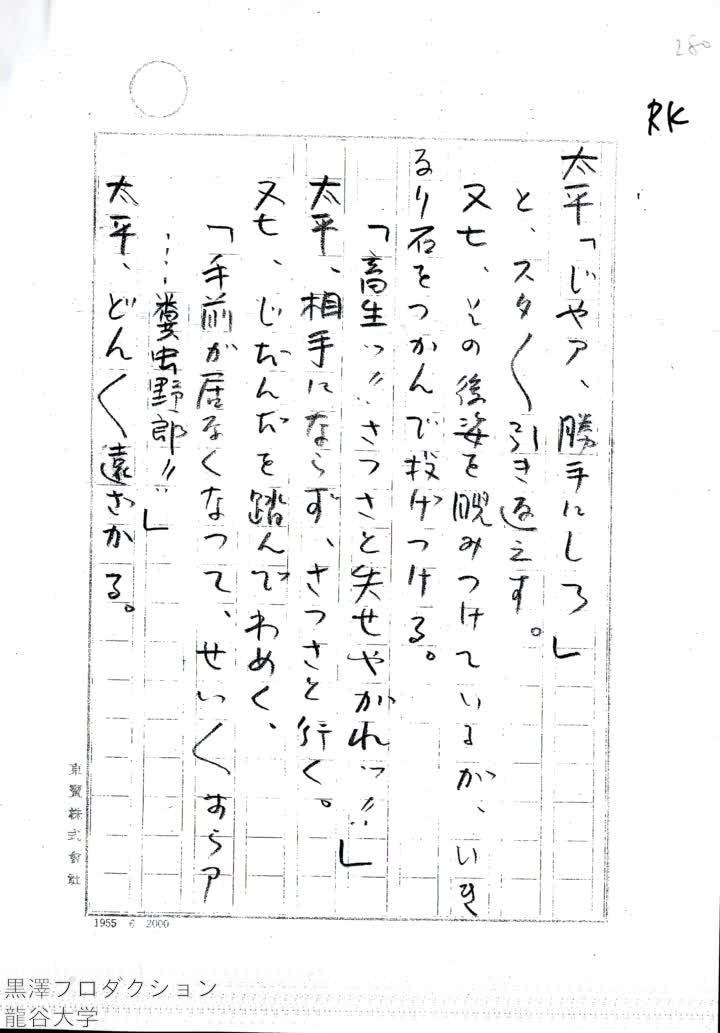 280
RK
太平「じゃア、勝手にしろ」
と、スタ〱引き返えす。
又七、その後姿を睨みつけているが、いき
なり石をつかんで投げつける。
「畜生ッ!! さつさと失せやがれッ!!」
太平、相手にならず、さつさと行く。
又七、じだんだを踏んでわめく、
「手前が居なくなつて、せい〱すらア
……糞虫野郎!!」
太平、どん〱遠ざかる。
東寶株式會社
1955 6 2000
黒澤プロダクション
龍谷大学